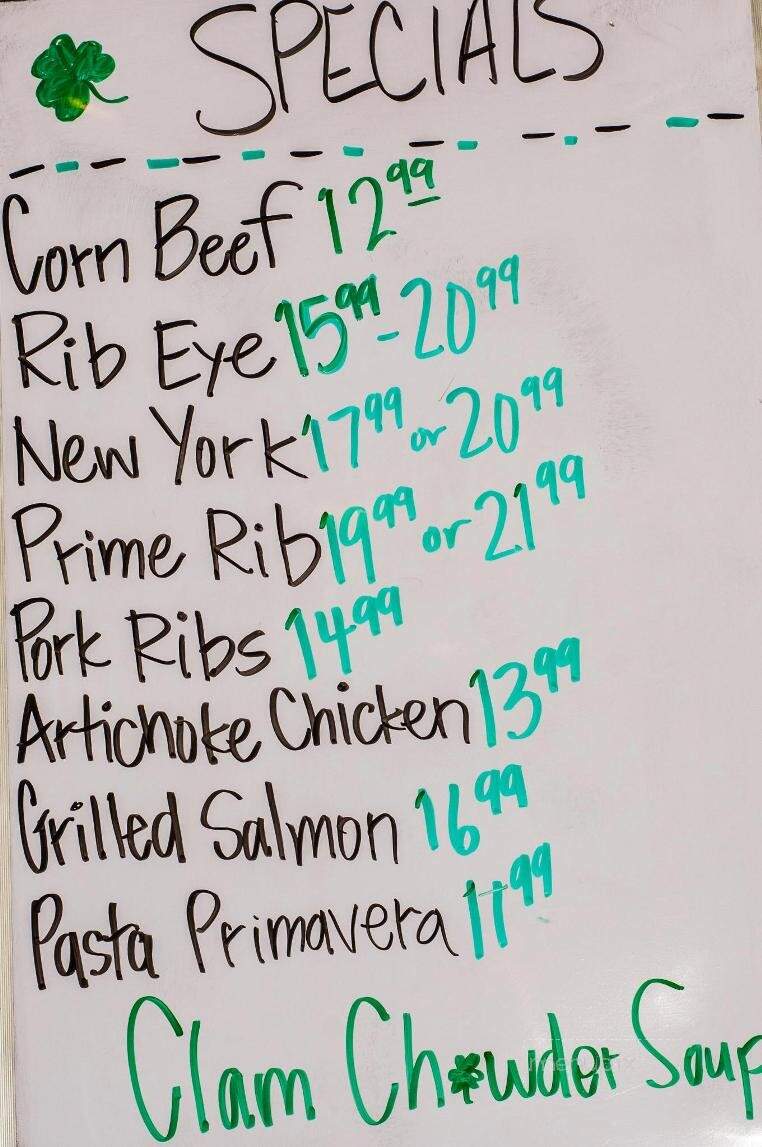 SPECIALS
Corn Beef 12.99
Rib Eye 15.99 - 20.99
New York 17.99 or 20.99
Prime Rib 19.99 or 21.99
Pork Ribs 14.99
Artichoke Chicken 13.99
Grilled Salmon 16.99
Pasta Primavera 11.99
Clam Chowder Soup